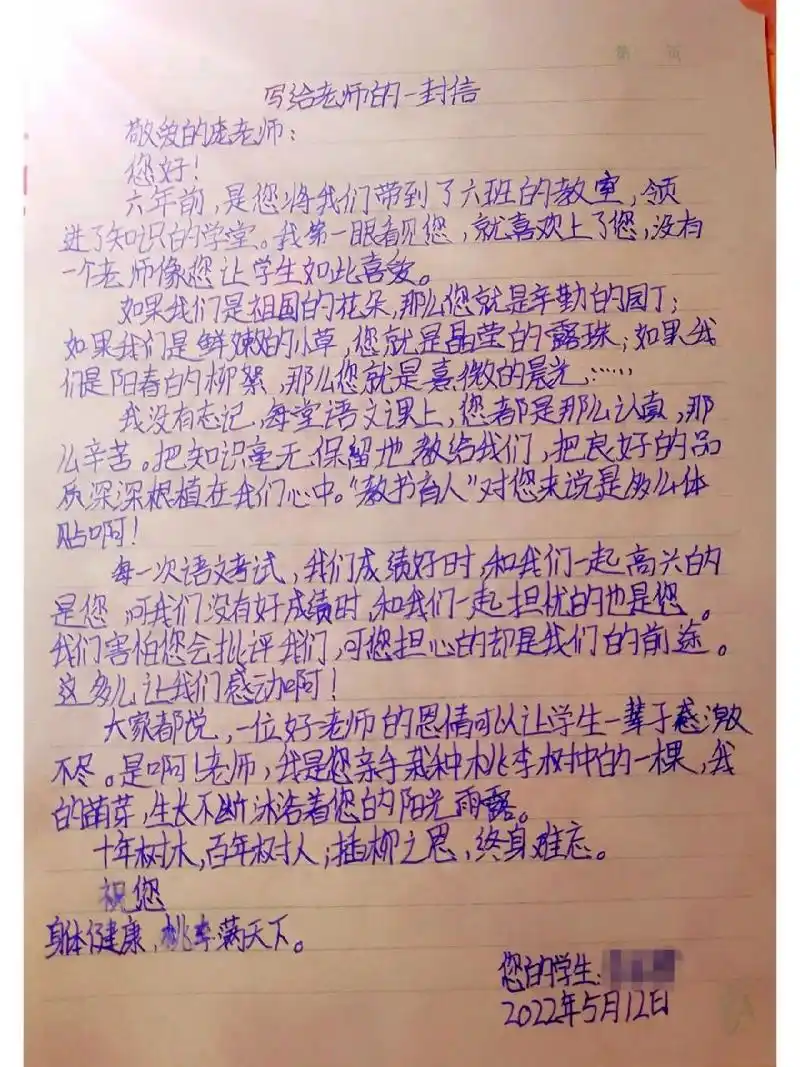 写给老师的一封信
敬爱的庞老师：
您好！
六年前，是您将我们带到了六班的教室，领
进了知识的学堂。我第一眼看见您，就喜欢上了您，没有
一个老师像您让学生如此喜爱。
如果我们是祖国的花朵，那么您就是辛勤的园丁；
如果我们是鲜嫩的小草，您就是晶莹的露珠；如果我
们是阳春的柳絮，那么您就是熹微的晨光……
我没有忘记，每堂语文课上，您都是那么认真，那
么辛苦。把知识毫无保留地教给我们，把良好的品
质深深根植在我们心中。“教书育人”对您来说是多么体
贴啊！
每一次语文考试，我们成绩好时，和我们一起高兴的
是您，可我们没有好成绩时，和我们一起担忧的也是您。
我们害怕您会批评我们，可您担心的却是我们的前途。
这多么让我们感动啊！
大家都说，一位好老师的恩情可以让学生一辈子感激
不尽。是啊！老师，我是您亲手栽种桃李树中的一棵，我
的萌芽，生长不断沐浴着您的阳光雨露。
十年树木，百年树人；插柳之恩，终身难忘。
祝您
身体健康，桃李满天下。
您的学生：
2022年5月12日